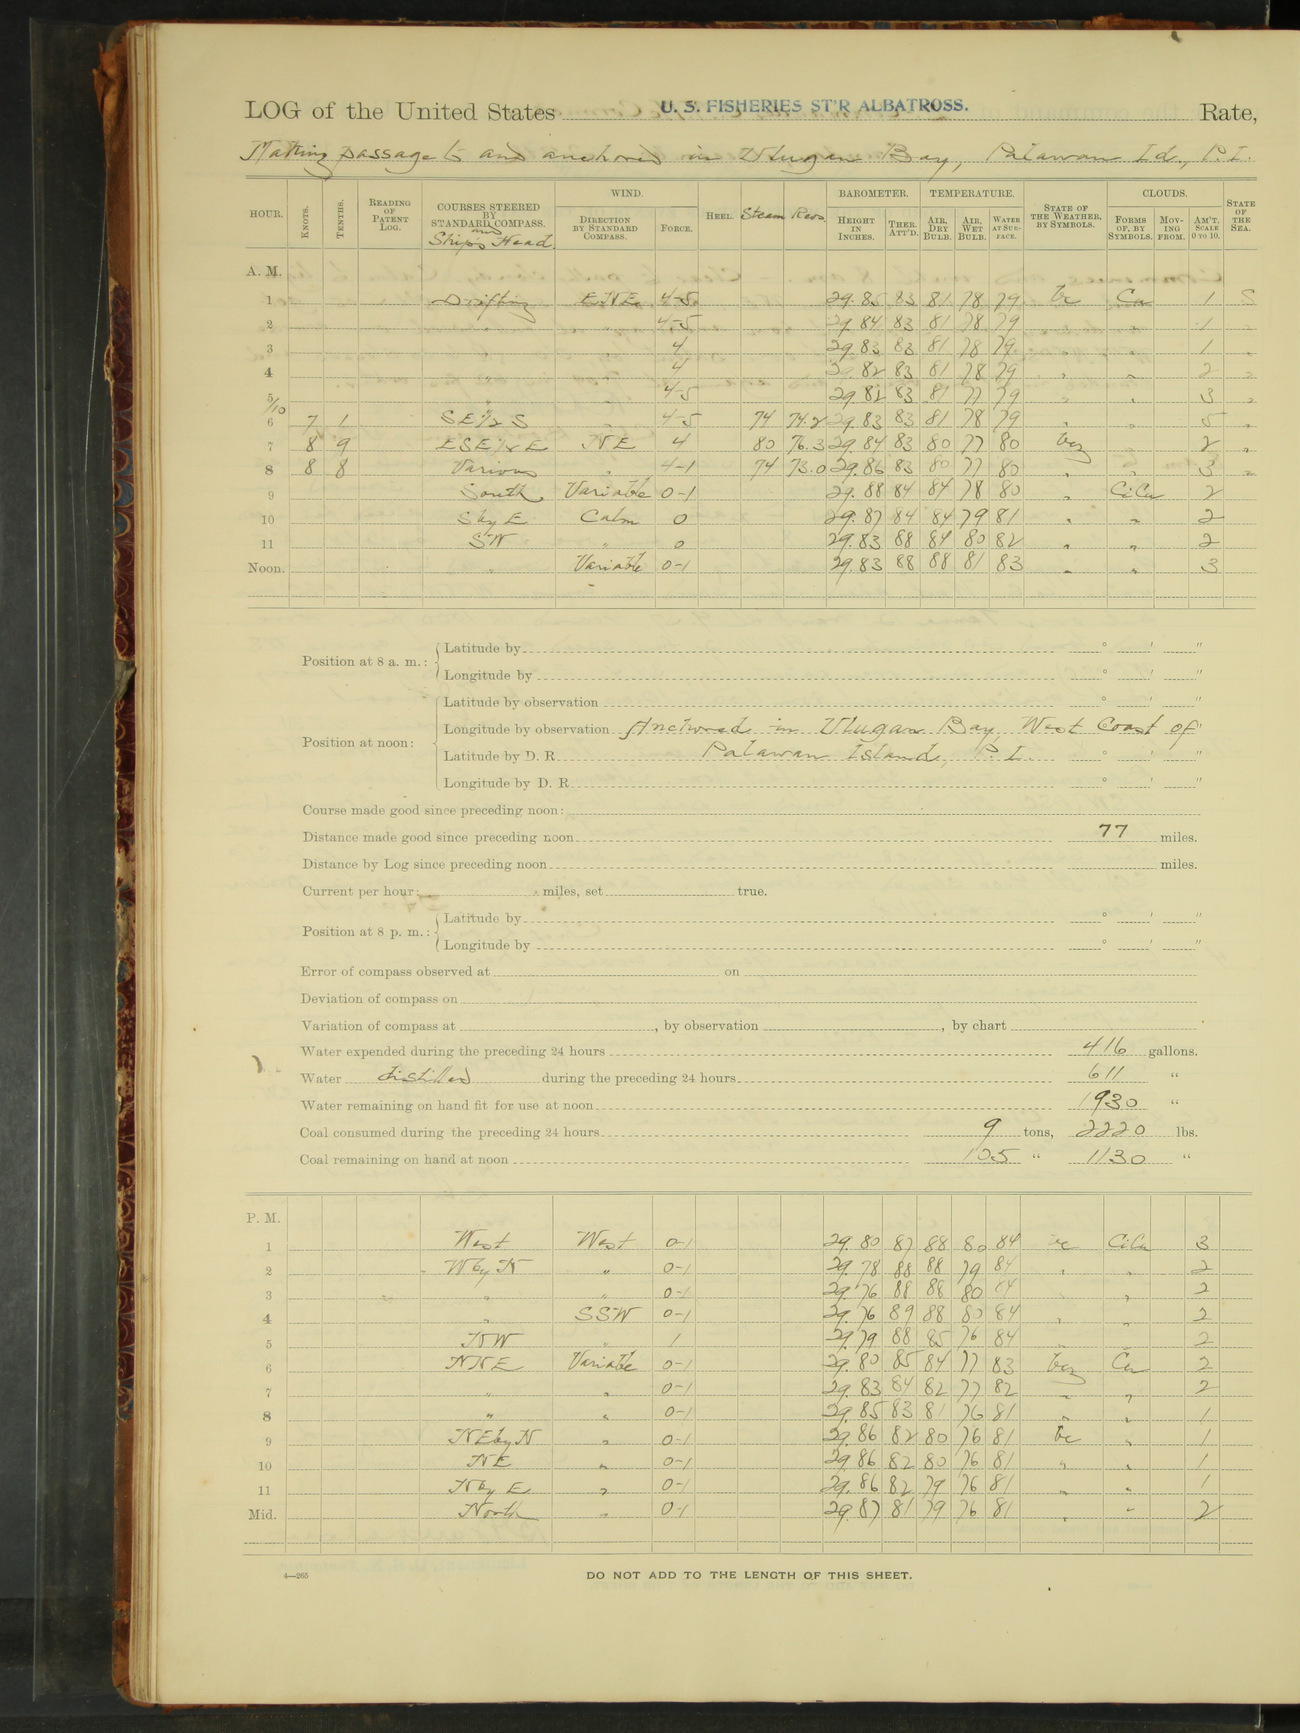 LOG of the United States U. S. FISHERIES ST'R ALBATROSS. Rate,
Making passage to and anchored in Ulugan Bay, Palawan Id., P. I.
HOUR. KNOTS. TENTHS. READING OF PATENT LOG. COURSES STEERED BY STANDARD COMPASS. and Ship's Head. WIND. DIRECTION BY STANDARD COMPASS. FORCE. HEEL. Steam Revs. BAROMETER. HEIGHT IN INCHES. THER. ATT'D. TEMPERATURE. AIR, DRY BULB. AIR, WET BULB. WATER AT SURFACE. STATE OF THE WEATHER, BY SYMBOLS. CLOUDS. FORMS OF, BY SYMBOLS. MOVING FROM. AM'T. SCALE 0 TO 10. STATE OF THE SEA.
A. M.
1 Drifting ENE 4-5 29.85 83 81 78 79 bc Cu 1 S
2 " 4-5 29.84 83 81 78 79 " " 1 "
3 " " 4 29.83 83 81 78 79 " " 1 "
4 " " 4 29.82 83 81 78 79 " " 2 "
5 " " 4-5 29.82 83 81 77 79 " " 3 "
5/10
6 7 1 SE½S " 4-5 74 74.2 29.83 83 81 78 79 " " 5 "
7 8 9 ESE½E NE 4 80 76.3 29.84 83 80 77 80 bcz 2 "
8 8 8 Various " 4-1 74 73.0 29.86 83 80 77 80 " " 3 "
9 South Variable 0-1 29.88 84 84 78 80 " CiCu 2
10 S by E Calm 0 29.87 84 84 79 81 " " 2
11 SW " 0 29.83 88 84 80 82 " " 2
Noon. " Variable 0-1 29.83 88 88 81 83 " " 3
Position at 8 a. m.: Latitude by ° ' "
Longitude by ° ' "
Position at noon: Latitude by observation ° ' "
Longitude by observation Anchored in Ulugan Bay, West Coast of
Latitude by D. R. Palawan Island, P. I. ° ' "
Longitude by D. R. ° ' "
Course made good since preceding noon:
Distance made good since preceding noon 77 miles.
Distance by Log since preceding noon miles.
Current per hour: miles, set true.
Position at 8 p. m.: Latitude by ° ' "
Longitude by ° ' "
Error of compass observed at on
Deviation of compass on
Variation of compass at , by observation , by chart
Water expended during the preceding 24 hours 416 gallons.
Water distilled during the preceding 24 hours 611 "
Water remaining on hand fit for use at noon 1930 "
Coal consumed during the preceding 24 hours 9 tons, 2220 lbs.
Coal remaining on hand at noon 105 " 1130 "
P. M.
1 West West 0-1 29.80 87 88 80 84 bc CiCu 3
2 W by N " 0-1 29.78 88 88 79 84 " " 2
3 " " 0-1 29.76 88 88 80 84 " 2
4 " SSW 0-1 29.76 89 88 80 84 " " 2
5 NW " 1 29.79 88 85 76 84 " " 2
6 NNE Variable 0-1 29.80 85 84 77 83 bcz Cu 2
7 " " 0-1 29.83 84 82 77 82 " " 2
8 " " 0-1 29.85 83 81 76 81 " " 1
9 NE by N " 0-1 29.86 82 80 76 81 bc " 1
10 NE " 0-1 29.86 82 80 76 81 " " 1
11 N by E " 0-1 29.86 82 79 76 81 " " 1
Mid. North " 0-1 29.87 81 79 76 81 " " 2
4—265
DO NOT ADD TO THE LENGTH OF THIS SHEET.